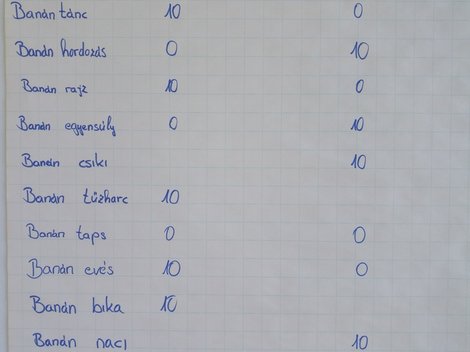 Banán tánc 10 0
Banán hordozás 0 10
Banán rajz 10 0
Banán egyensúly 0 10
Banán csiki 10
Banán tűzharc 10
Banán taps 0 0
Banán evés 10 0
Banán bika 10
Banán naci 10